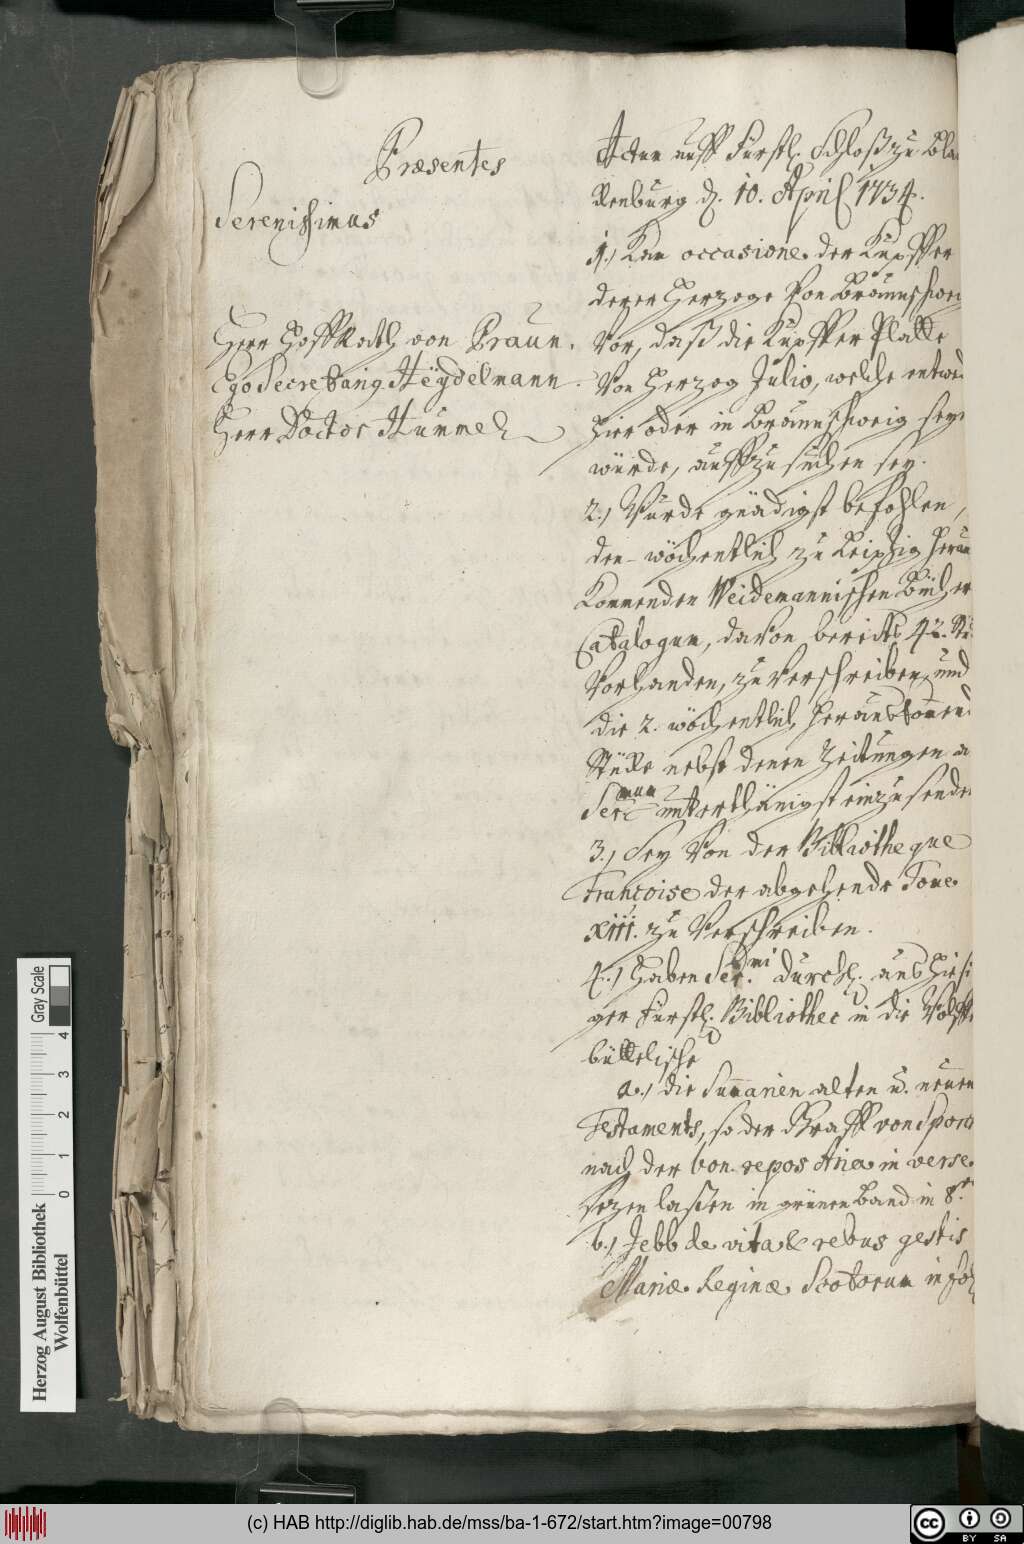 Præsentes
Serenissimus
Herr HoffRath von Praun.
Ego Secretarius Heÿdelmann.
Herr Doctor Hummel
Actum auff Fürstl. Schloß zu Bla
kenburg d. 10. April 1734.
1.) Kam occasione der Kupffer
derer Herzoge von Braunschwei
vor, daß die Kupffer Platte
von Herzog Julio, welche entwed
hier oder in Braunschweig seyn
würde, auffzusuchen sey.
2.) Wurde gnädigst befohlen,
den wöchentlich zu Leipzig heraus
kommenden Weidemannischen Bücher
Catalogum, davon bereits 42. Stü
vorhanden, zu verschreiben, und
die 2. wöchentlich herauskom̄end
Stücke nebst denen Zeitungen a
Ser.mum unterthänigst einzusenden
3.) Sey von der Bibliotheque
Francoise der abgehende Tome
XIII. zu verschreiben.
4.) Haben Ser.mi Durchl. aus hiesi
ger Fürstl. Bibliothec in die Wolffe
büttelische
a.) die Sum̄arien alten u. neuen
Testaments, so der Graff von Sporc
nach der bon repos Aria in verse
sezen laßen in grünen Band in 8.
b.) Jebb de vita & rebus gestis
Mariæ Reginæ Scotorum in fol
Herzog August Bibliothek
Wolfenbüttel
0 1 2 3 4
Gray Scale
(c) HAB http://diglib.hab.de/mss/ba-1-672/start.htm?image=00798
cc BY SA